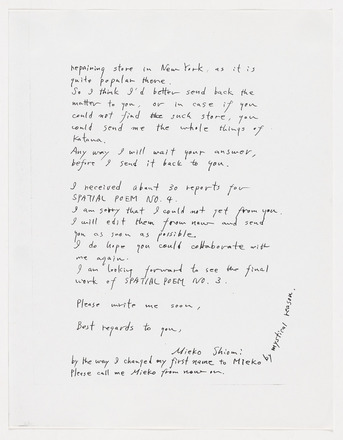 repairing store in New York, as it is
quite popular there.
So I think I'd better send back the
matter to you, or in case if you
could not find the such store, you
could send me the whole things of
Katana.
Any way I will wait your answer,
before I send it back to you.
I received about 30 reports for
SPATIAL POEM NO. 4.
I am sorry that I could not get from you.
I will edit them from now and send
you as soon as possible.
I do hope you could collaborate with
me again.
I am looking forward to see the final
work of SPATIAL POEM NO. 3.
Please write me soon,
Best regards to you,
Mieko Shiomi
by the way I changed my first name to Mieko
by mystical reason.
Please call me Mieko from now on.